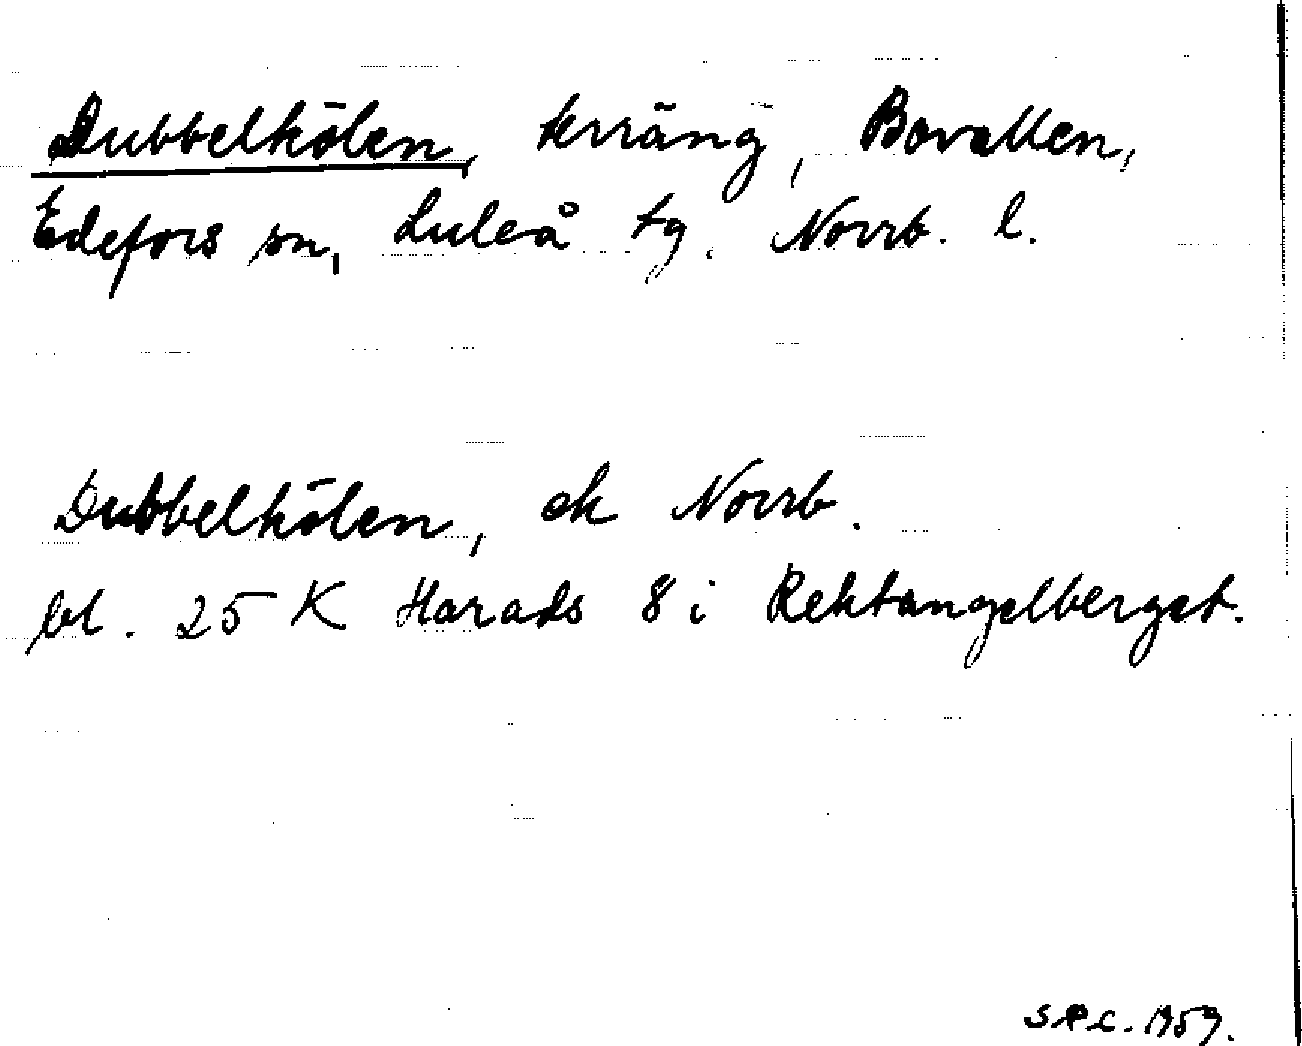 Dubbelkölen, terräng, Bovallen,
Edefors sn, Luleå tg. Norrb. l.
Dubbelkölen, ek Norrb.
bl. 25 K Harads 8 i Rektangelberget.
S.P.C. 1959.